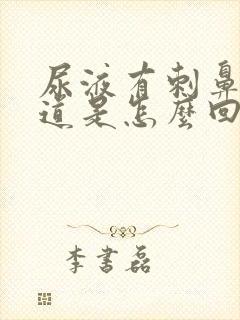 尿液有刺鼻
道是怎麼回
李書磊